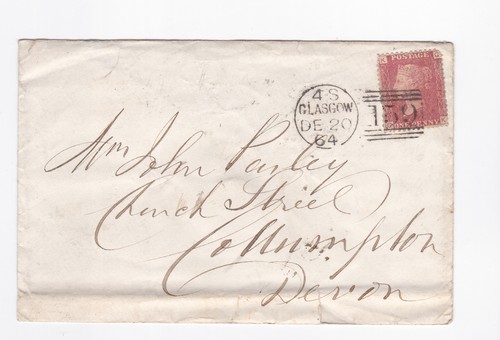 POSTAGE
ONE PENNY
4·S
GLASGOW
DE 20
64
159
Wm John Parley
Church Street
Collumpton
Devon